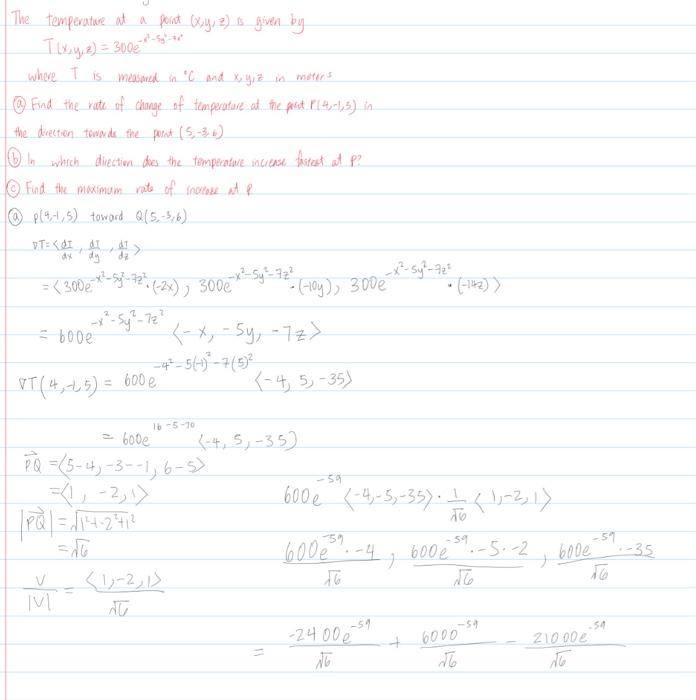 The temperature at a point (x,y,z) is given by
T(x,y,z) = 300e^{-x²-5y²-7z²}
where T is measured in °C and x,y,z in meters
ⓐ Find the rate of change of temperature at the point P(4,-1,5) in
the direction towards the point (5,-3,6)
ⓑ In which direction does the temperature increase fastest at P?
ⓒ Find the maximum rate of increase at P
ⓐ P(4,-1,5) toward Q(5,-3,6)
∇T=<dT/dx, dT/dy, dT/dz>
=<300e^{-x²-5y²-7z²}·(-2x), 300e^{-x²-5y²-7z²}·(-10y), 300e^{-x²-5y²-7z²}·(-14z)>
= 600e^{-x²-5y²-7z²} <-x, -5y, -7z>
∇T(4,-1,5) = 600e^{-4²-5(-1)²-7(5)²} <-4, 5, -35>
= 600e^{16-5-70} <-4, 5, -35)
PQ =<5-4, -3--1, 6-5>
=<1, -2, 1>
|PQ| = √1²+-2²+1²
=√6
V/|V| = <1,-2,1>/√6
600e^{-59} <-4,-5,-35>·1/√6 <1,-2,1>
600e^{-59}·-4/√6, 600e^{-59}·-5·-2/√6, 600e^{-59}·-35/√6
= -2400e^{-59}/√6 + 6000^{-59}/√6 - 21000e^{-59}/√6